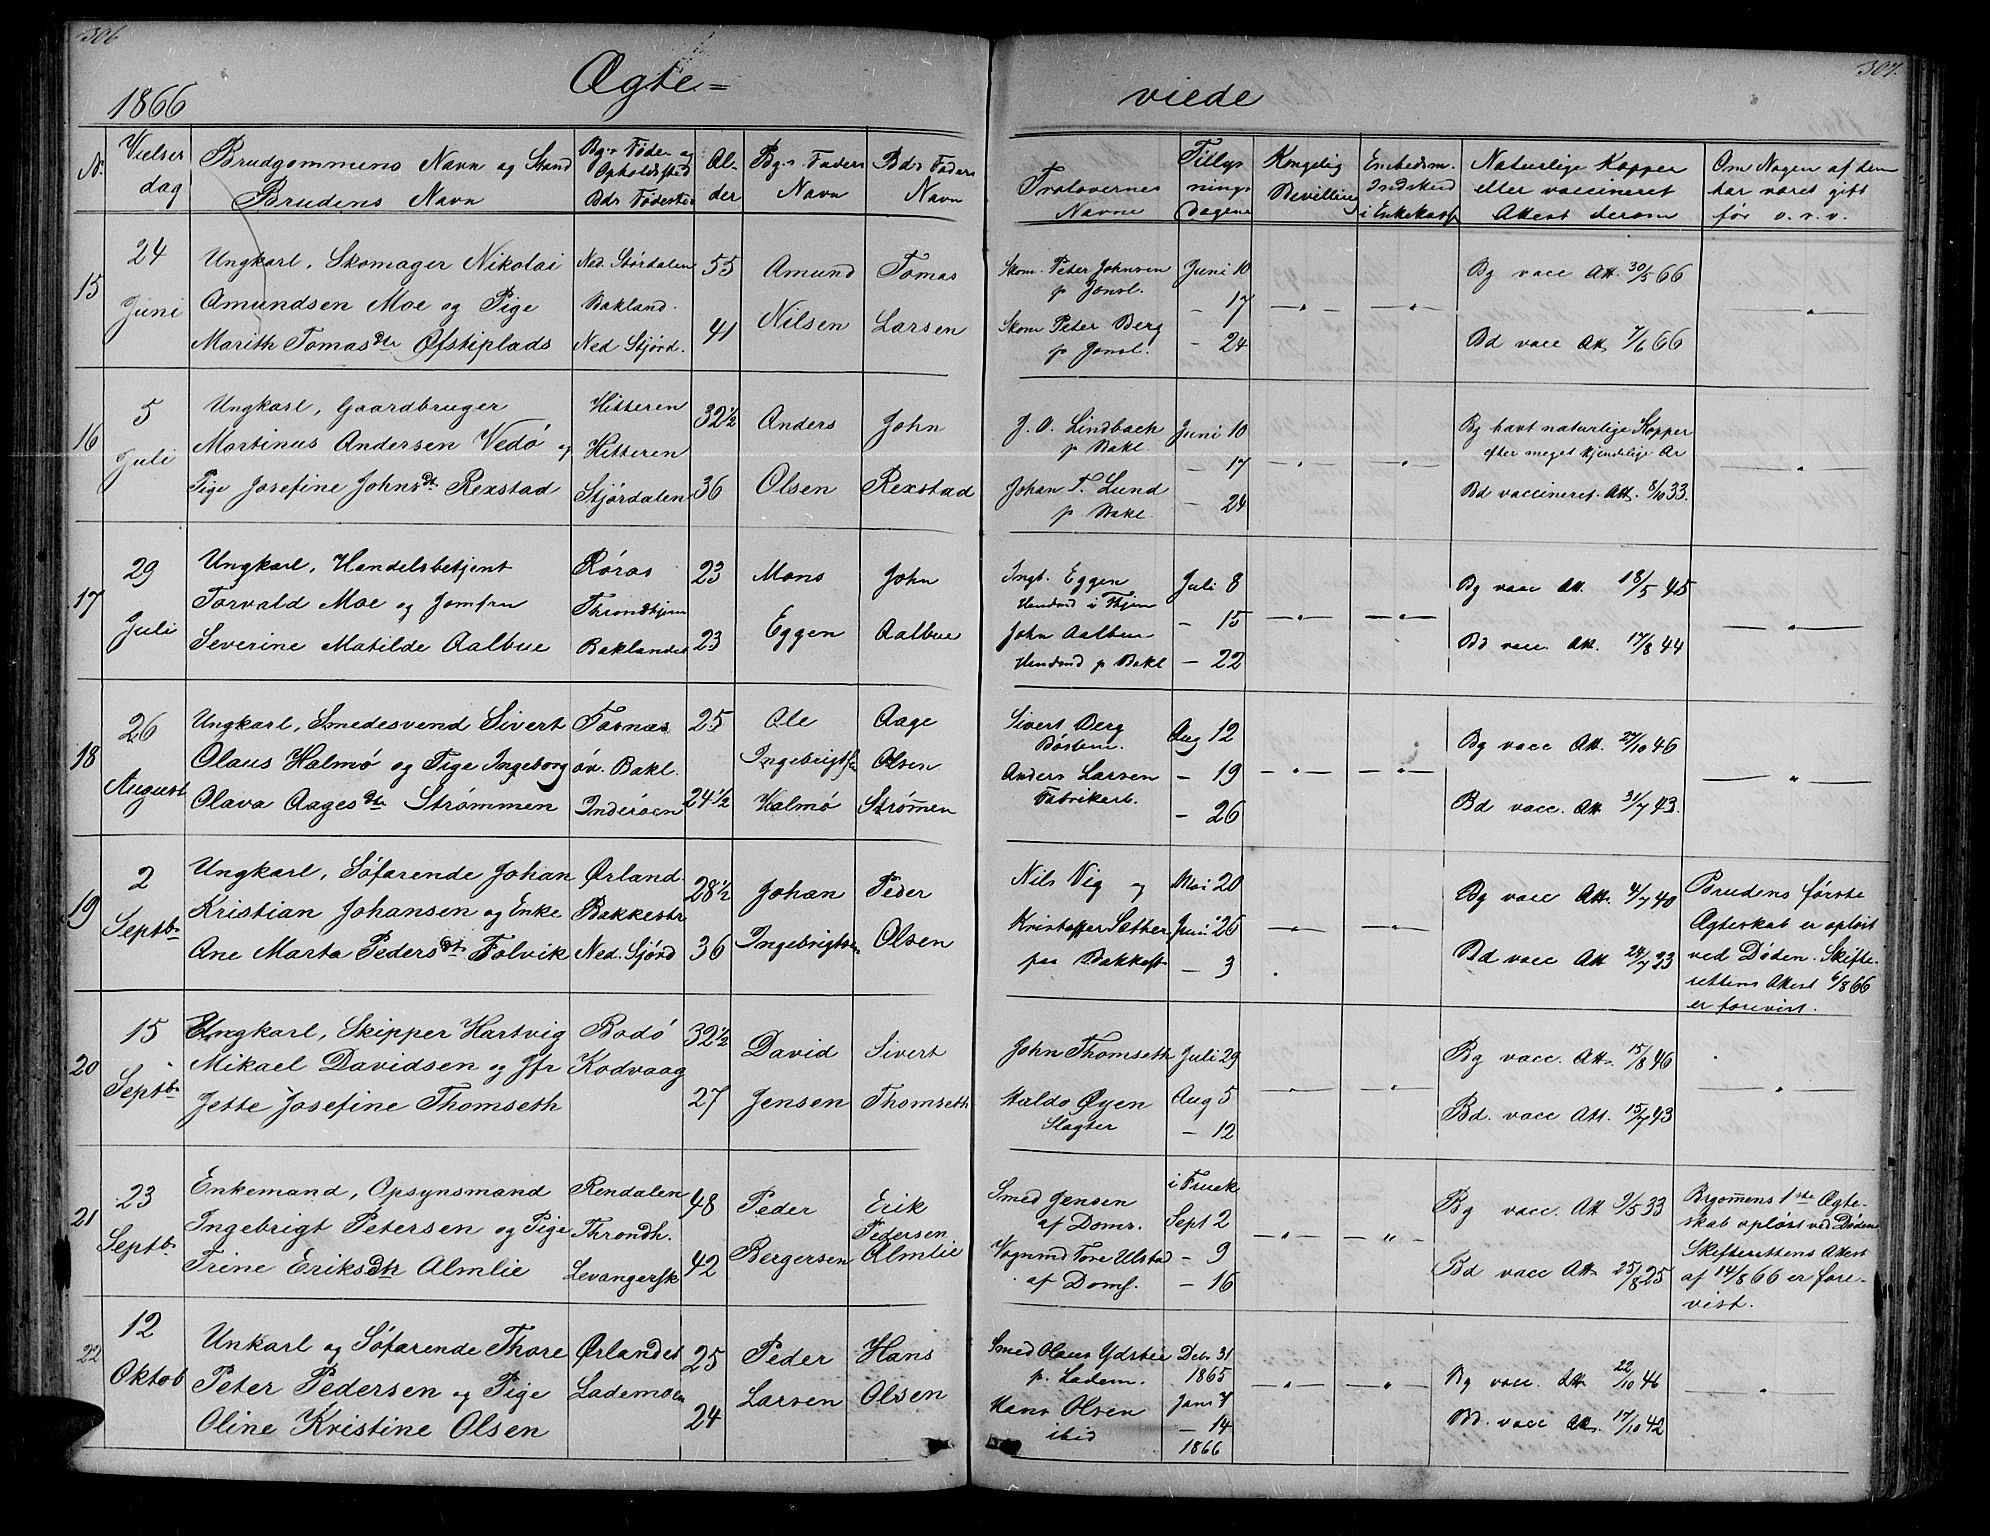 306
307.
Ægte=
viede
1866
No.
Vielses
dag
Brudgommens Navn og Stand
Brudens Navn
Bg.s Føde- og
Opholdssted
Bds Fødested
Al-
der
Bg.s Faders
Navn
Bds Faders
Navn
Forlovernes
Navne
Tillys
nings
dagene
Kongelig
Bevilling
Embedsm.
Indskud
i Enkekass.
Naturlige Kopper
eller vaccineret
Attest derom
Om Nogen af dem
har været gift
før o.s.v.
15
24
Juni
Ungkarl, Skomager Nikolai
Amundsen Moe og Pige
Marith Tomasdtr Øfstiplads
Ned. Størdalen
Bakland.
Ned Stjørd.
55
41
Amund
Nilsen
Tomas
Larsen
Skom. Peter Johnsen
p Jonsl.
Skom Peter Berg
p Jonsl.
Juni 10
— 17
— 24
— " —
— " —
Bg vacc Att. 30/5 66
Bd vacc Att 7/6 66
— " —
16
5
Juli
Ungkarl, Gaardbruger
Martinus Andersen Vedø og
Pige Josefine Johnsdt Rexstad
Hitteren
Hitteren
Stjørdalen
32 1/2
36
Anders
Olsen
John
Rexstad
J. O. Lindbach
p Bakl.
Johan T. Lund
p Bakl.
Juni 10
— 17
— 24
— " —
— " —
Bg havt naturlige Kopper
efter meget kjendelige Ar
Bd vaccineret. Att. 8/10 33.
— " —
17
29
Juli
Ungkarl, Handelsbetjent
Torvald Moe og Jomfru
Severine Matilde Aalbue
Røros
Throndhjem
Baklandet
23
23
Mons
Eggen
John
Aalbue
Ingb. Eggen
Handmd i Thjem
John Aalbue
Handmd p Bakl
Juli 8
— 15
— 22
— " —
— " —
Bg vacc Att. 18/5 45
Bd vacc. Att. 17/8 44
— " —
18
26
August
Ungkarl, Smedesvend Sivert
Olaus Halmø og Pige Ingeborg
Olava Aagesdtr Strømmen
Fosnæs
øv. Bakl.
Inderøen
25
24 1/2
Ole
Ingebrigtsen
Halmø
Aage
Olsen
Strømen
Sivert Berg
Anders Larsen
Fabrikarb.
Aug 12
— 19
— 26
— " —
— " —
Bg vacc Att. 27/10 46
Bd vacc. Att 31/7 43.
— " —
19
2
Septbr
Ungkarl, Søfarende Johan
Kristian Johansen og Enke
Ane Marta Pedersdt Folvik
Ørland.
Bakkestr
Ned. Sjørd
28 1/2
36
Johan
Ingebrigtsen
Peder
Olsen
Nils Vig og
Kristoffer Sæther
paa Bakkest.
Mai 20
Juni 26
— 3
— " —
— " —
Bg vacc Att. 4/7 40
Bd vacc Att 24/7 33
Brudens første
Ægteskab er opløst
ved Døden. Skifte-
rettens Attest 6/8 66
er forevist.
20
15
Septbr
Ungkarl, Skipper Hartvig
Mikael Davidsen og Jfr
Jette Josefine Thomseth
Bodø
Kodvaag
32 1/2
27
David
Jensen
Sivert
Thomseth
John Thomseth
Haldo Øyen
Slagter
Juli 29
Aug 5
— 12
— " —
— " —
Bg vacc. Att. 15/8 46
Bd. vacc Att. 15/7 43
— " —
21
23
Septbr
Enkemand, Opsynsmand
Ingebrigt Petersen og Pige
Trine Eriksdtr Almlie
Rendalen
Throndh.
Levangersk
48
42
Peder
Bergersen
Erik
Pedersen
Almlie
Smed Jensen
af Doms.
Vognmd Tore Ulstad
af Doms.
i Fruek
Sept 2
— 9
— 16
— " —
— " —
Bg vacc. Att 9/5 33
Bd vacc Att. 25/8 25
Brgomens 1ste Ægte-
skab opløst ved Døden
Skifterettens Attest
af 14/8 66 er fore-
vist.
22
12
Oktob
Unkarl og Søfarende Thore
Peter Pedersen og Pige
Oline Kristine Olsen
Ørlandet
Lademoen
25
24
Peder
Larsen
Hans
Olsen
Smed Olaus Ydstie
p. Ladem.
Hans Olsen
ibid
Debr 31
1865
Janr 7
— 14
1866
— " —
— " —
Bg vacc. Att 22/10 46
Bd. vacc Att. 17/10 42
— " —